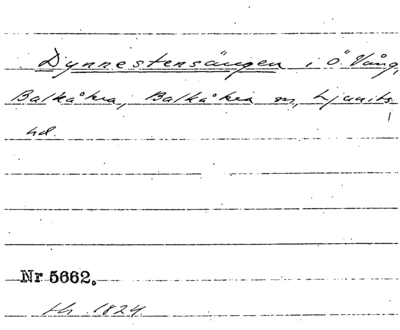 Dynnestensängen i Ö. Vång,
Balkåkra, Balkåkra sn, Ljunits
hd.
Nr 5662.
Lh. 1824